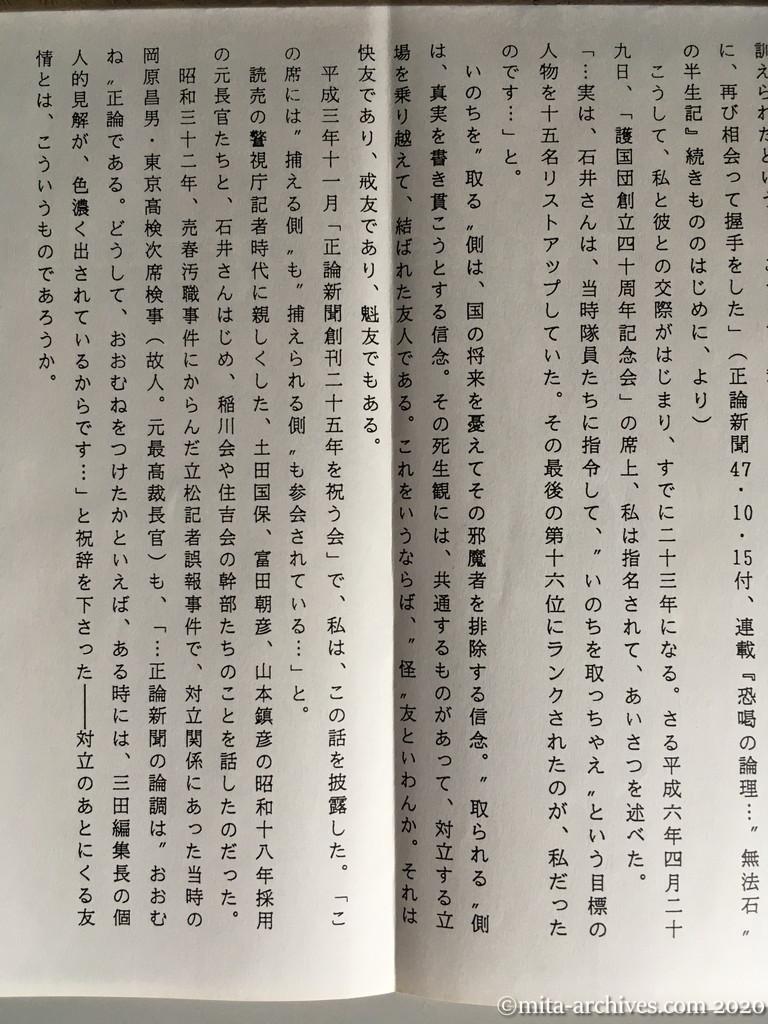 に、再び相会って握手をした」（正論新聞47・10・15付、連載『恐喝の論理…〟無法石〟
の半生記』続きもののはじめに、より）
こうして、私と彼との交際がはじまり、すでに二十三年になる。さる平成六年四月二十
九日、「護国団創立四十周年記念会」の席上、私は指名されて、あいさつを述べた。
「…実は、石井さんは、当時隊員たちに指令して、〟いのちを取っちゃえ〟という目標の
人物を十五名リストアップしていた。その最後の第十六位にランクされたのが、私だった
のです…」と。
いのちを〟取る〟側は、国の将来を憂えてその邪魔者を排除する信念。〟取られる〟側
は、真実を書き貫こうとする信念。その死生観には、共通するものがあって、対立する立
場を乗り越えて、結ばれた友人である。これをいうならば、〟怪〟友といわんか。それは
快友であり、戒友であり、魁友でもある。
平成三年十一月「正論新聞創刊二十五年を祝う会」で、私は、この話を披露した。「こ
の席には〟捕える側〟も〟捕えられる側〟も参会されている…」と。
読売の警視庁記者時代に親しくした、土田国保、富田朝彦、山本鎮彦の昭和十八年採用
の元長官たちと、石井さんはじめ、稲川会や住吉会の幹部たちのことを話したのだった。
昭和三十二年、売春汚職事件にからんだ立松記者誤報事件で、対立関係にあった当時の
岡原昌男・東京高検次席検事（故人。元最高裁長官）も、「…正論新聞の論調は〟おおむ
ね〟正論である。どうして、おおむねをつけたかといえば、ある時には、三田編集長の個
人的見解が、色濃く出されているからです…」と祝辞を下さった――対立のあとにくる友
情とは、こういうものであろうか。
©mita-archives.com 2020